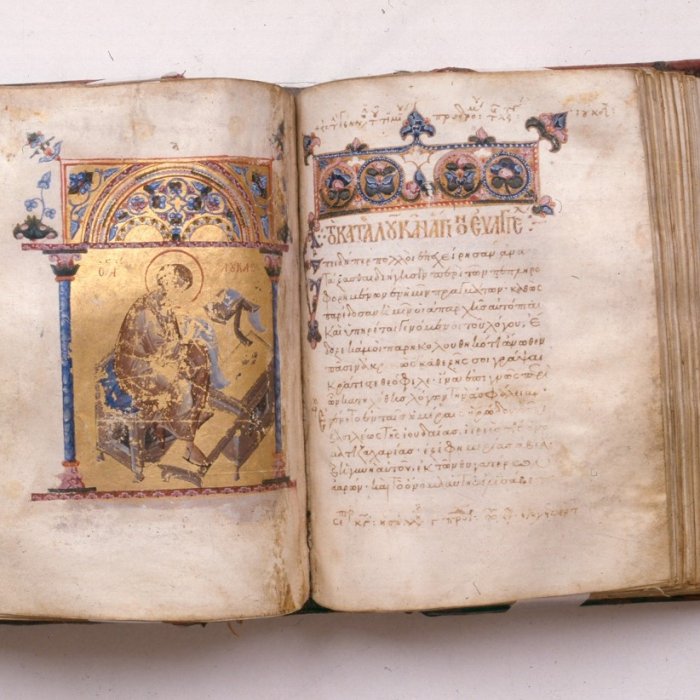 ΛΟΥΚΑС
ΚΑΤΑ ΛΟΥΚΑΝ ΕΥΑΓΓΕ
πειδήπερ πολλοὶ ἐπεχείρησαν ἀνα
τάξασθαι διήγησιν περὶ τῶν πεπληρο
φορημένων ἐν ἡμῖν πραγμάτων· καθὼς
παρέδοσαν ἡμῖν οἱ ἀπαρχῆς αὐτόπται
καὶ ὑπηρέται γενόμενοι τοῦ λόγου, ἔ
δοξε κἀμοὶ παρηκολουθηκότι ἄνωθεν
πᾶσιν ἀκριβῶς καθεξῆς σοι γράψαι
κράτιστε θεόφιλε· ἵνα ἐπιγνῶς περὶ
ὧν κατηχήθης λόγων τὴν ἀσφάλειαν·
Ἐγένετο ἐν ταῖς ἡμέραις ἡρώδου τοῦ
βασιλέως τῆς ἰουδαίας· ἱερεύς τις ὀνό
ματι ζαχαρίας· ἐξ ἐφημερίας ἀβιά·
καὶ ἡ γυνὴ αὐτοῦ, ἐκ τῶν θυγατέρων
ἀαρών· καὶ τὸ ὄνομα αὐτῆς ἐλισάβετ